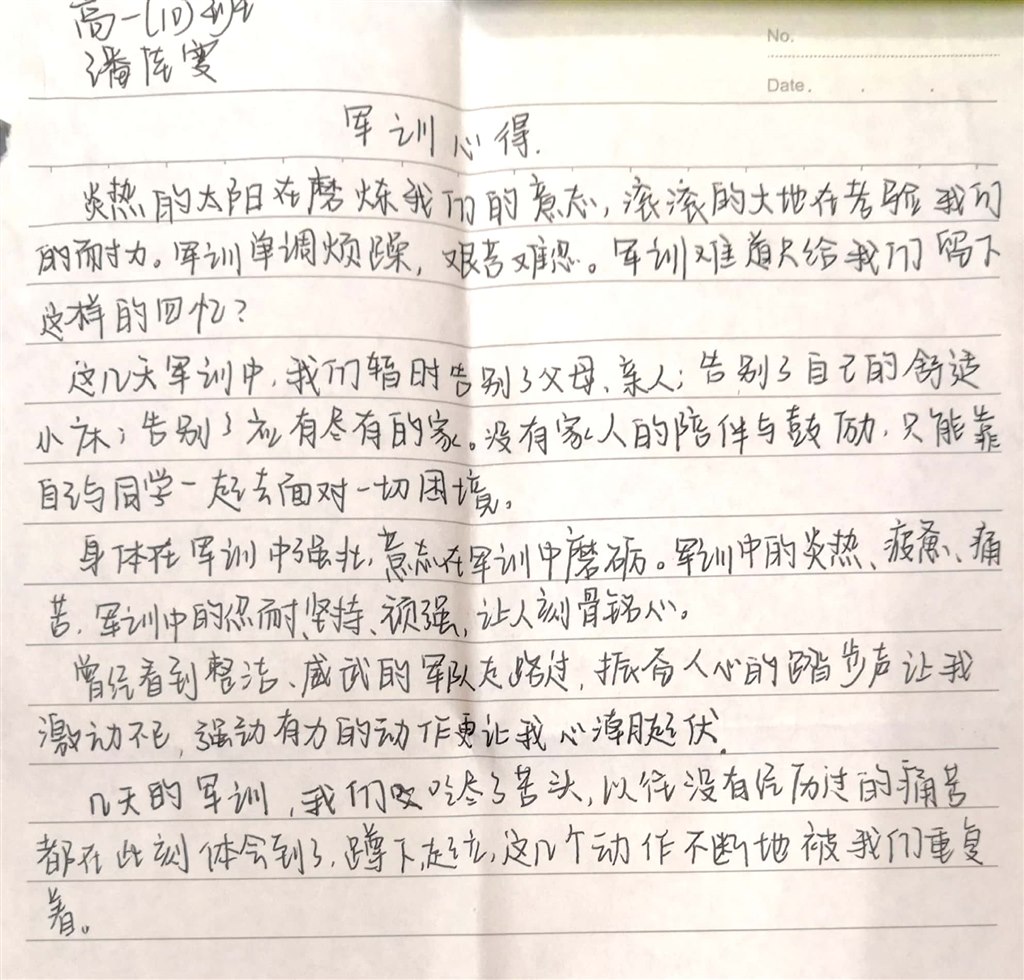 高一(10)班
潘陈雯
No.
Date.
军训心得.
炎热的太阳在磨炼我们的意志,滚滚的大地在考验我们
的耐力。军训单调烦躁,艰苦难忍。军训难道只给我们留下
这样的回忆?
这几天军训中,我们暂时告别了父母、亲人;告别了自己的舒适
小床;告别了应有尽有的家。没有家人的陪伴与鼓励,只能靠
自己与同学一起去面对一切困境。
身体在军训中强壮,意志在军训中磨砺。军训中的炎热、疲惫、痛
苦.军训中的忍耐、坚持、顽强,让人刻骨铭心。
曾经看到整洁、威武的军队走路过,振奋人心的踏步声让我
激动不已,强劲有力的动作更让我心潮起伏.
几天的军训,我们吃尽了苦头,以往没有经历过的痛苦
都在此刻体会到了,蹲下,起立,这几个动作不断地被我们重复
着。